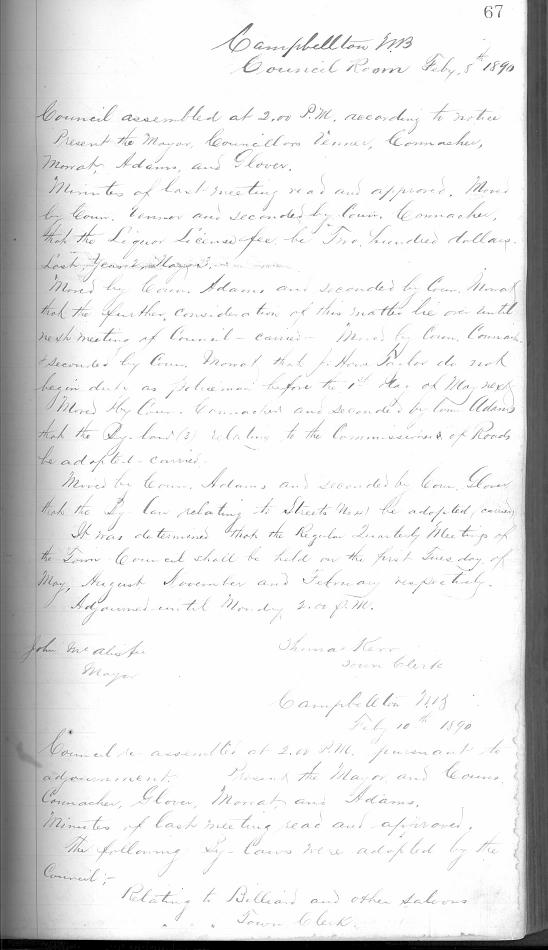 67
Campbellton N.B
Council Room Feby. 5th 1890
Council assembled at 2.00 P.M. according to notice
Present the Mayor, Councillors Venner, Connacher,
Mowat, Adams, and Glover.
Minutes of last meeting read and approved. Moved
by Coun. Vennor and seconded by Coun. Connacher,
that the Liquor License fee be Two hundred dollars.
Last Year
Moved by Coun. Adams and seconded by Coun. Mowat
that the further consideration of this matter lie over until
next meeting of Council - carried - Moved by Coun. Connach
& seconded by Coun. Mowat that Taylor do not
begin duty as policeman before the 1st day of May next
Moved by Coun. Connacher and seconded by Coun Adams
that the By-Law (2) relating to the Commissioners of Roads
be adopted - carried.
Moved by Coun. Adams and seconded by Coun. Glover
that the By law relating to Streets be adopted, carried
It was determined that the Regular Quarterly Meetings of
the Town Council shall be held on the first Tuesday of
May, August November and February respectively.
Adjourned until Monday 2.00 P.M.
John McAlister
Mayor
Thomas Kerr
Town Clerk
Campbellton N.B
Feby 10th 1890
Council re-assembled at 2.00 P.M. pursuant to
adjournment. Present the Mayor and Couns.
Connacher, Glover, Mowat, and Adams.
Minutes of last meeting read and approved.
The following By-Laws were adopted by the
Council:-
Relating to Billiard and other saloons
" " Town Clerk.